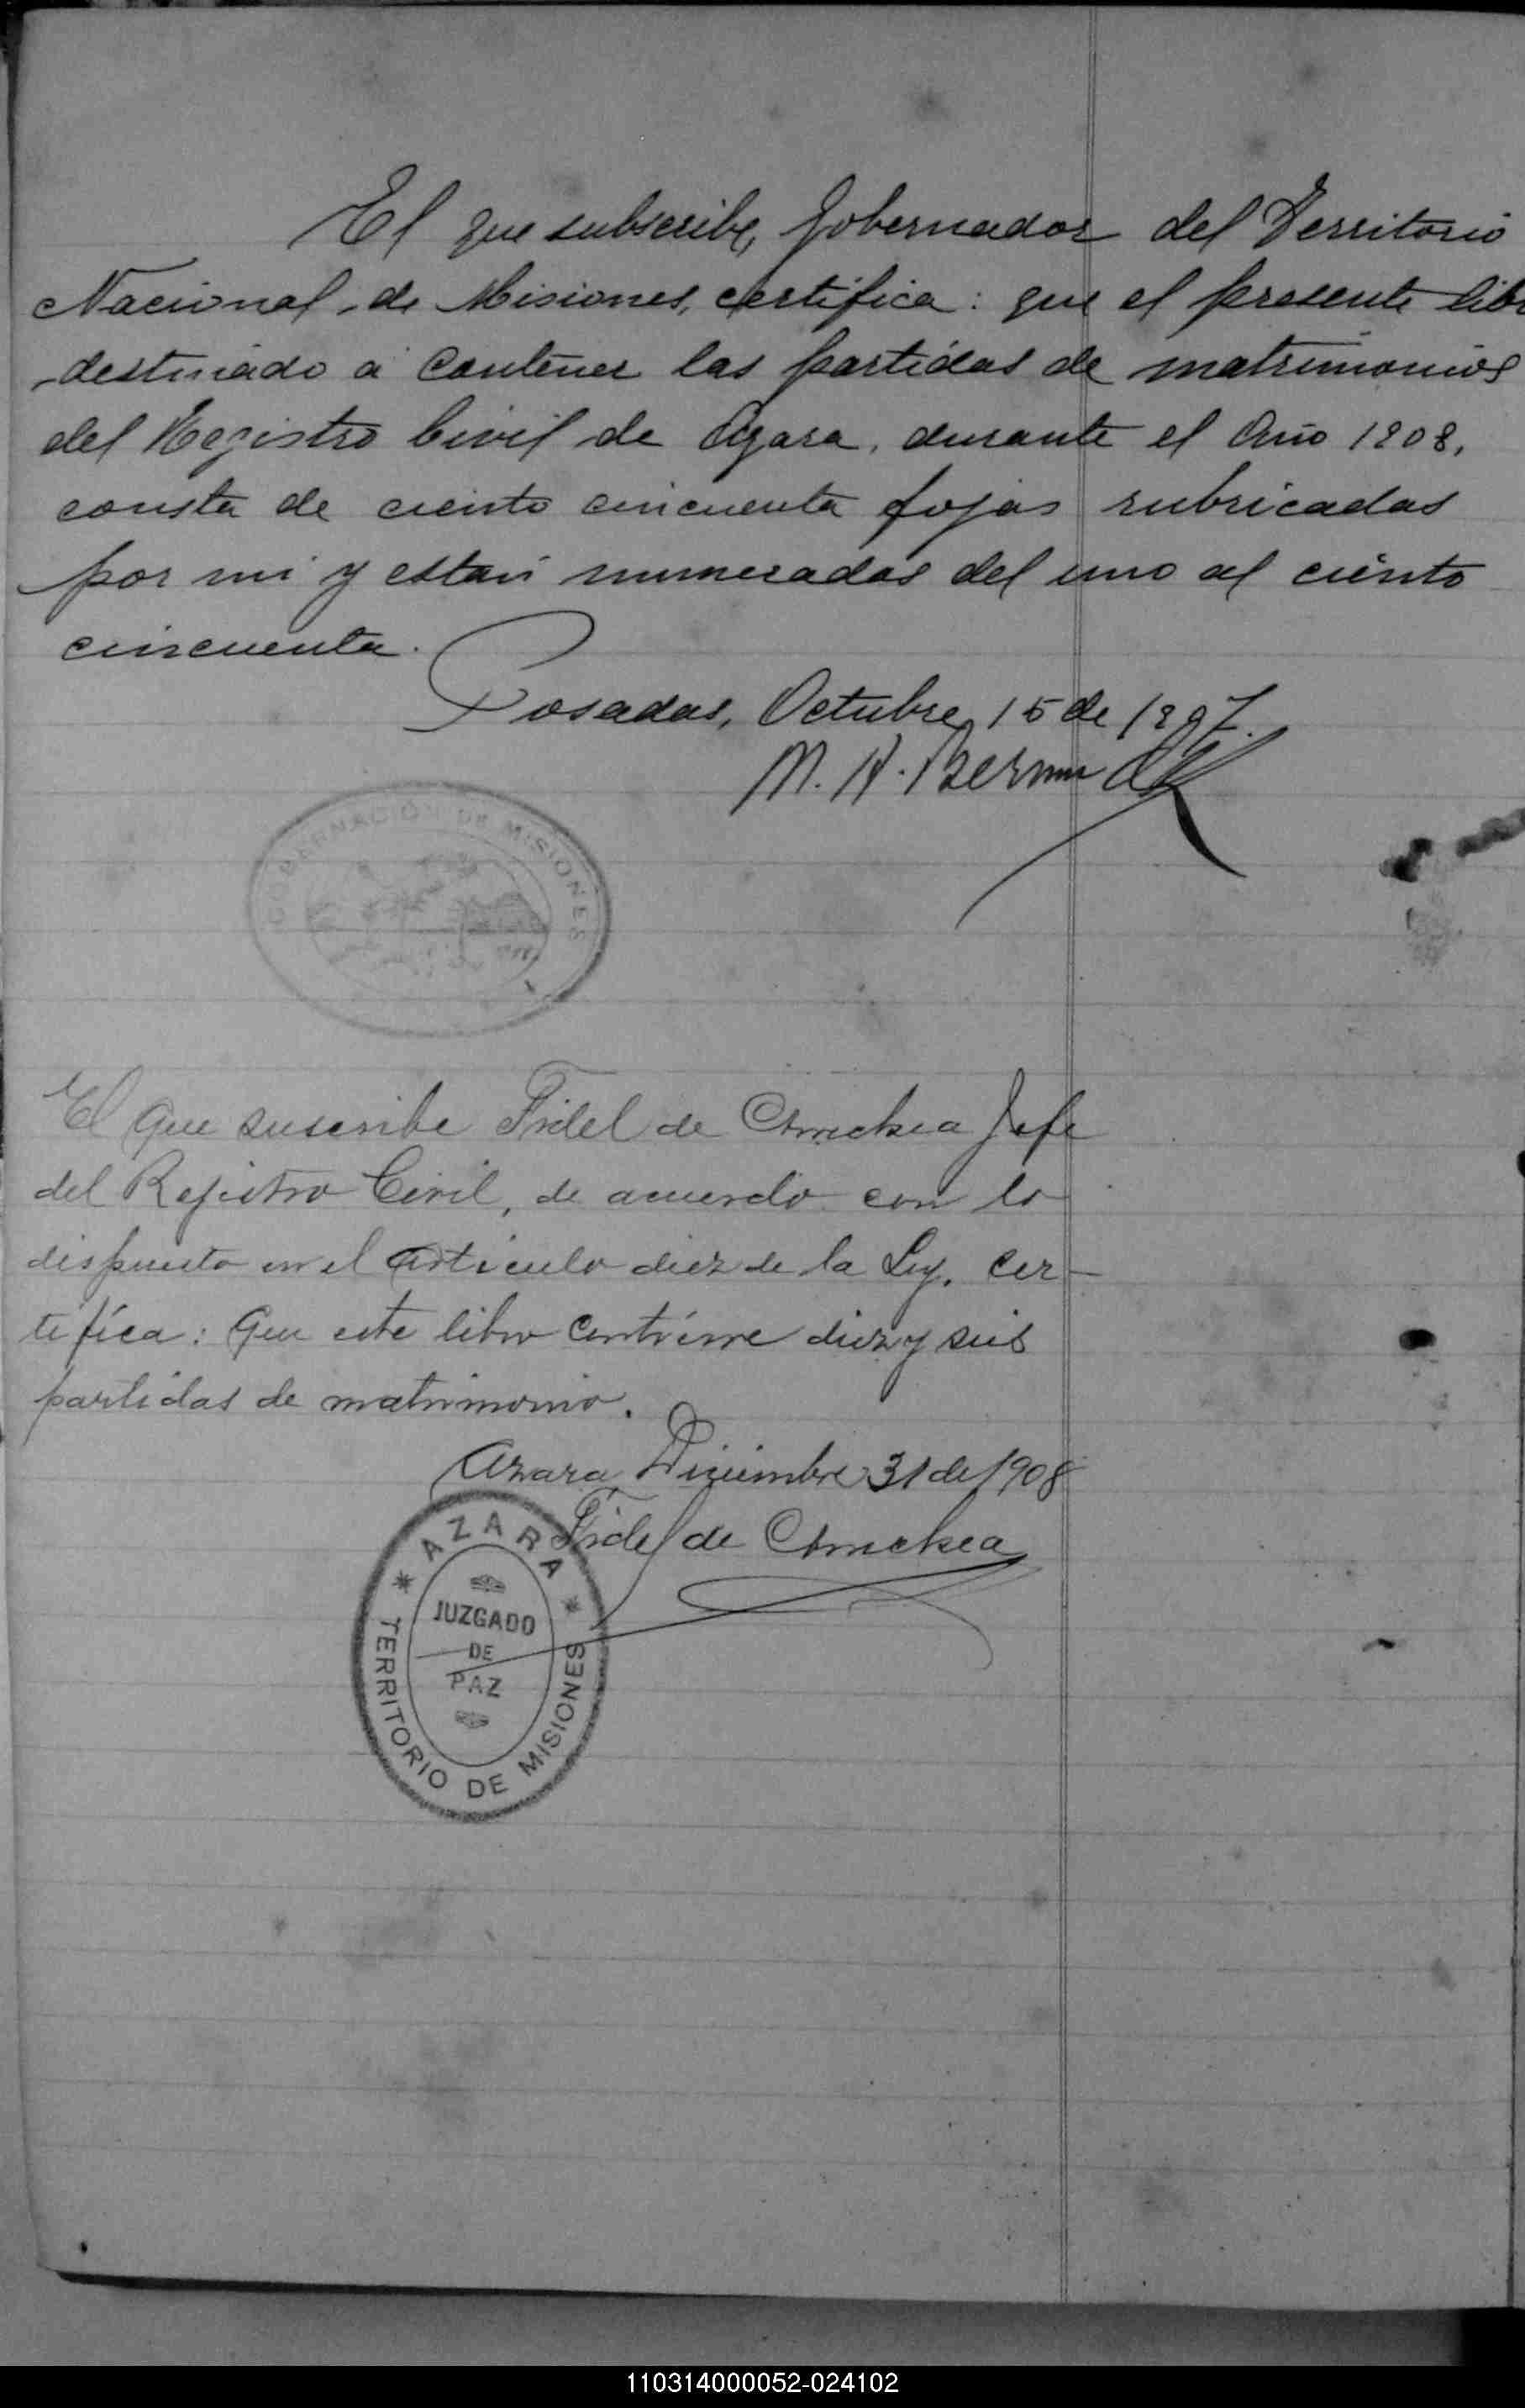 El que subscribe, Gobernador del Territorio
Nacional de Misiones, certifica: que el presente lib
destinado á contener las partidas de matrimonios
del Registro Civil de Azara, durante el Año 1908,
consta de ciento cincuenta fojas rubricadas
por mi y están numeradas del uno al ciento
cincuenta.
Posadas, Octubre 15 de 1907.
GOBERNACIO DE MISIONES
El que suscribe Fidel de Jefe
del Registro Civil, de acuerdo con lo
dispuesto en el articulo diez de la Ley, cer-
tifíca: Que este libro contiene diez y seis
partidas de matrimonio.
Azara Diciembre 31 de 1908
Fidel de
* AZARA *
JUZGADO
DE
PAZ
TERRITORIO DE MISIONES
110314000052-024102